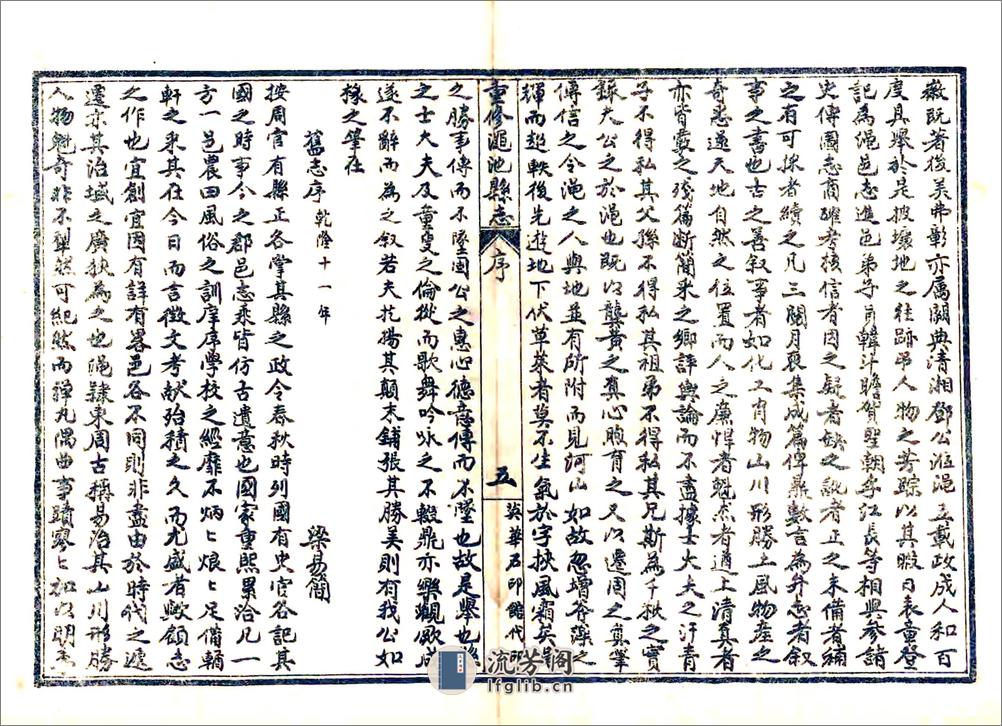 徽既著後美弗彰亦属闕典清湘鄧公涖澠五載政成人和百
度具舉於是披壤地之往跡吊人物之芳踪以其暇日衷量登
記為澠邑志進邑弟子員韓斗瞻賀聖朝李江長等相與參諸
史傳圖志商確考核信者因之疑者缺之訛者正之未備者補
之有可採者續之凡三閱月裒集成篇俾鼎數言為弁志者叙
事之書也古之善叙事者如化工肖物山川形勝土風物產之
奇悉遂天地自然之位置而人之廉悍者魁杰者道上清真者
亦皆載之殘編断簡采之鄉評輿論而不盡據士大夫之汗青
子不得私其父孫不得私其祖弟不得私其兄斯為千秋之實
録大公之於澠也既以龔黄之真心煦育之又以遷固之真筆
傳信之令澠之人與地並有所附而見河山如故忽增斧藻之
輝而超軼後先逝地下伏草萊者莫不生氣於字挾風霜矣
重修澠池縣志
序
五
英華石印館代印
之勝事傳而不墜闿公之惠心德意傳而不墜也故是舉也
之士大夫及童叟之倫從而歌舞吟咏之不輟鼎亦樂觀厥成
遂不辭而為之叙若夫扢揚其顛末鋪張其勝美則有我公如
椽之筆在
舊志序 乾隆十一年
梁易簡
按周官有縣正各掌其縣之政令春秋時列國有史官各記其
國之時事今之郡邑志乘皆仿古遺意也國家重熙累洽凡一
方一邑農田風俗之訓庠序學校之經靡不炳炳烺烺足備輶
軒之采其在今日而言徵文考献殆積之久而尤盛者歟顧志
之作也宜創宜因有詳有畧邑各不同則非盡由於時代之遞
遷亦其治域之廣狹為之也澠隸東周古稱易治其山川形勝
人物魁奇非不犁然可紀然而彈丸隅曲事蹟寥寥如以明志